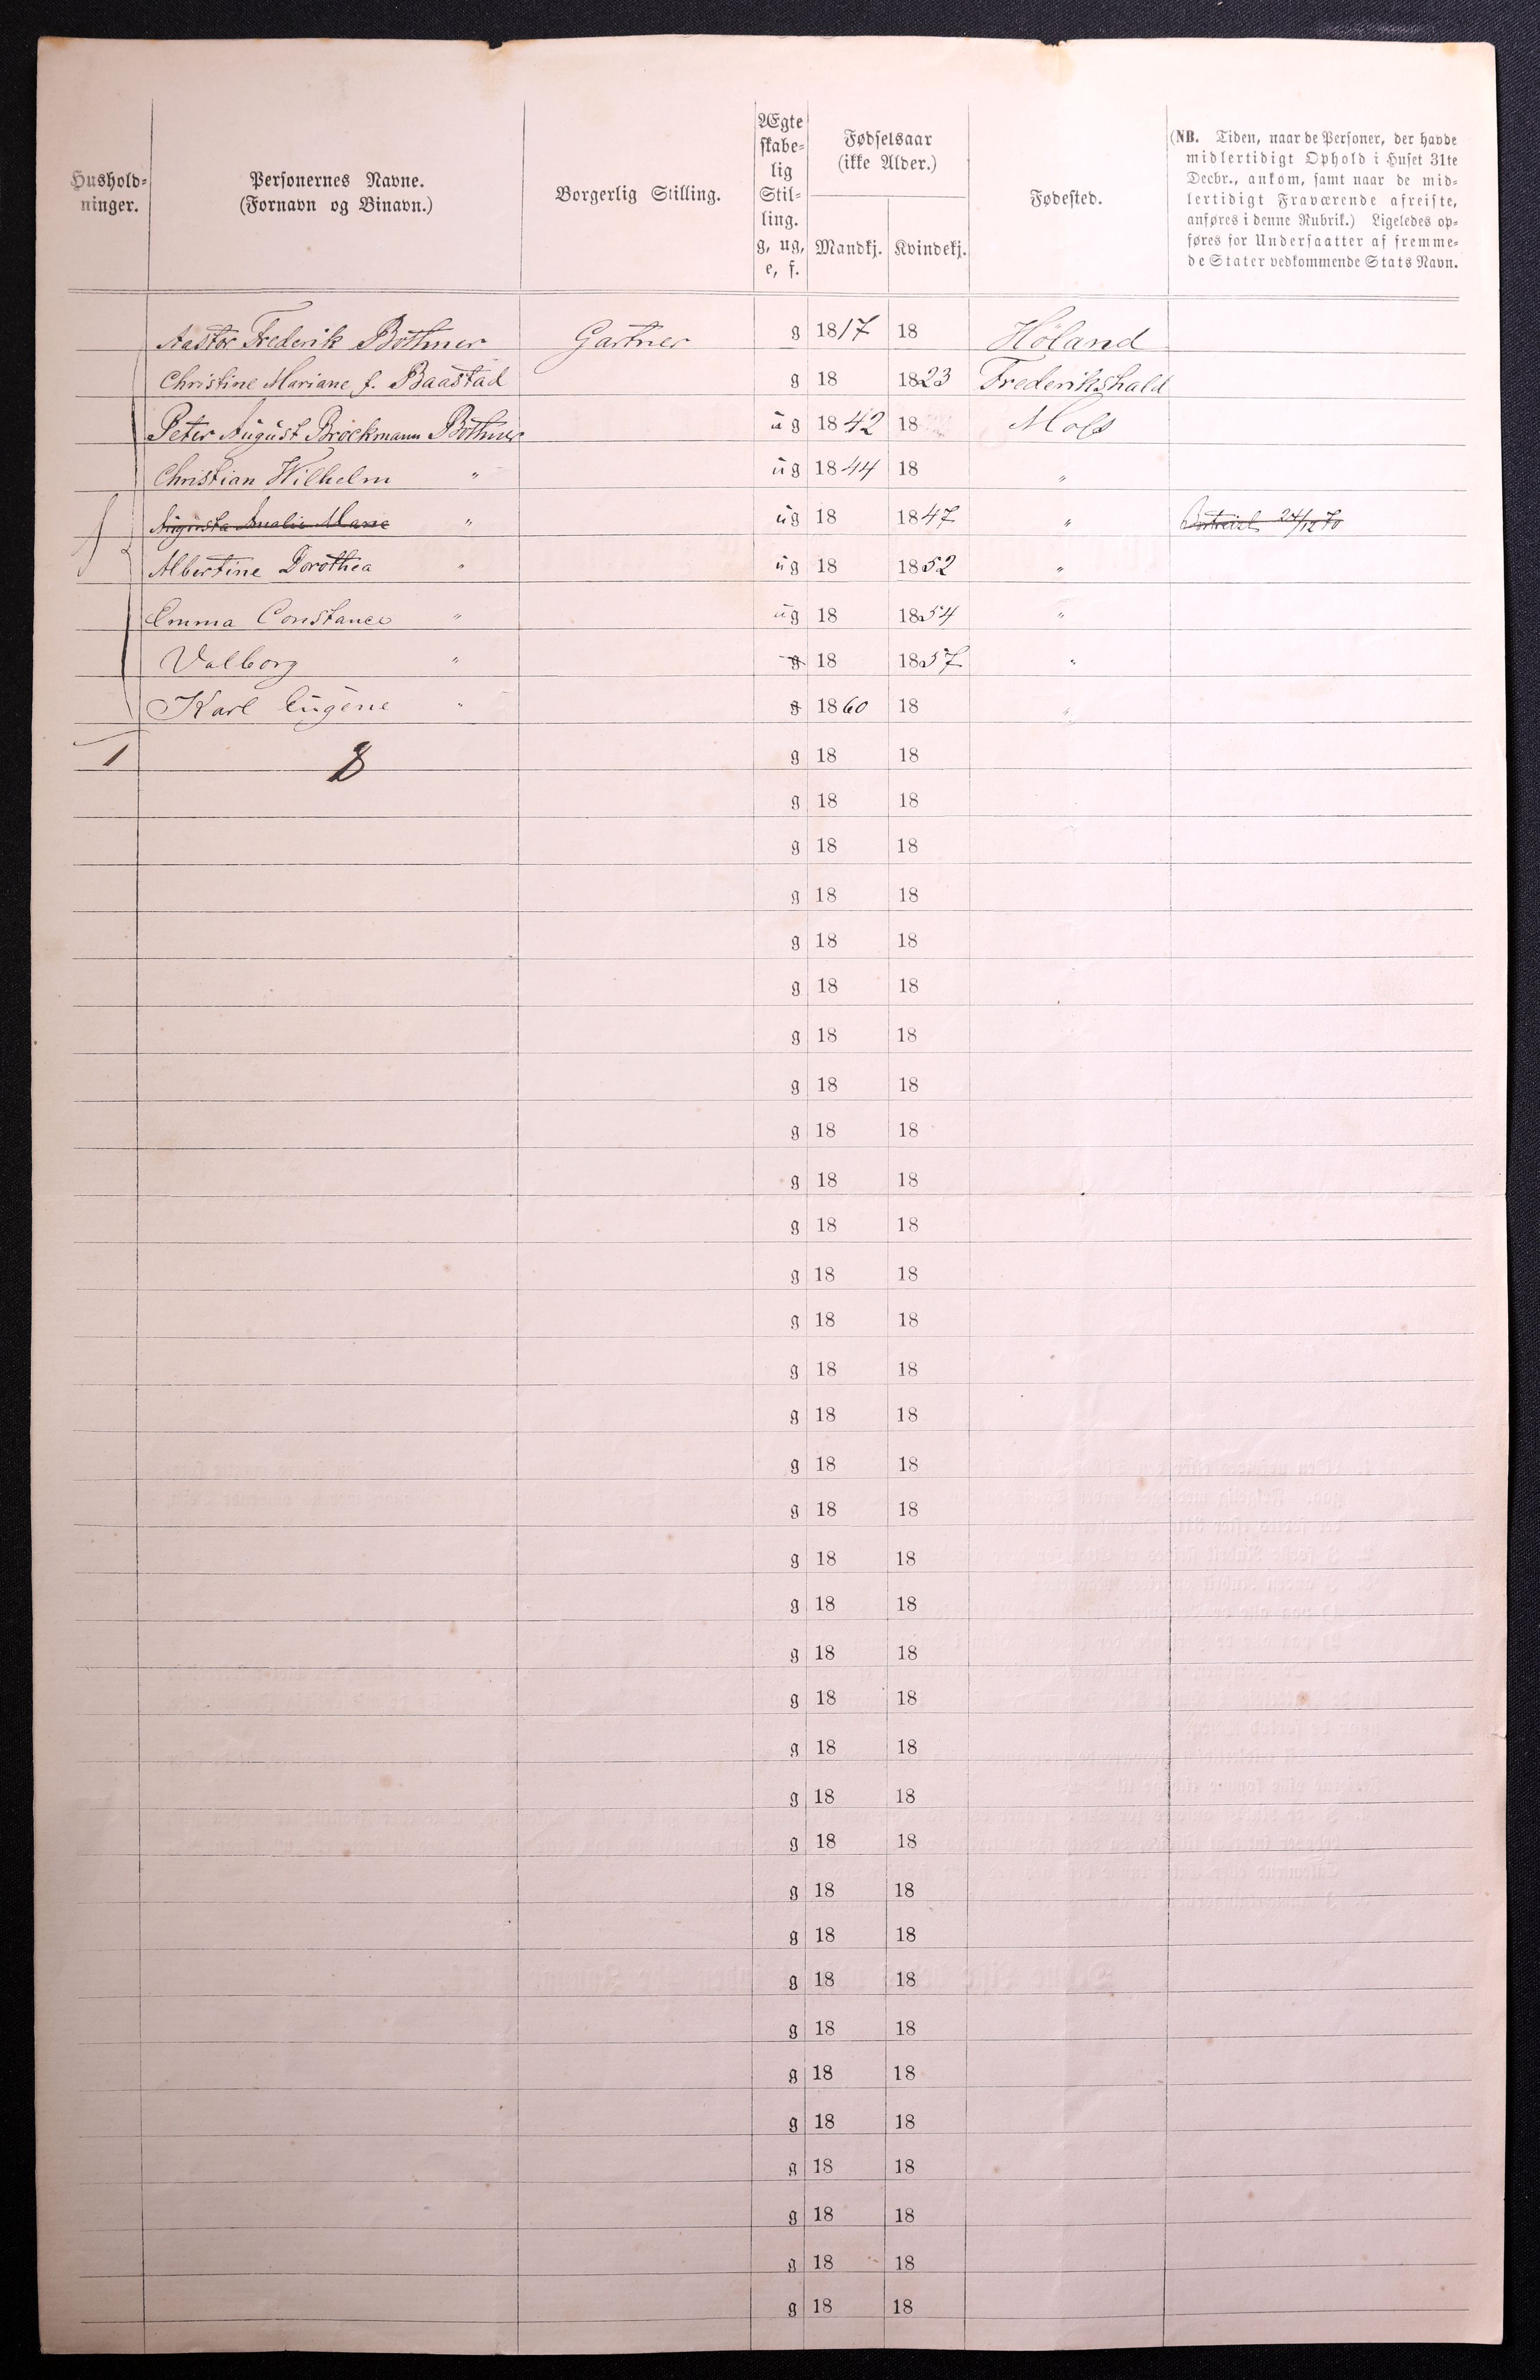 Hushold-
ninger.
Personernes Navne.
(Fornavn og Binavn.)
Borgerlig Stilling.
Ægte
skabe-
lig
Stil-
ling.
g, ug,
e, f.
Fødselsaar
(ikke Alder.)
Mandkj. Kvindekj.
Fødested.
(NB. Tiden, naar de Personer, der havde
midlertidigt Ophold i Huset 31te
Decbr., ankom, samt naar de mid-
lertidigt Fraværende afreiste,
anføres i denne Rubrik.) Ligeledes op-
føres for Undersaatter af fremme-
de Stater vedkommende Stats Navn.
Frederik Bothner Gartner g 1817 18 Höland
Christine Mariane f. Baastad g 18 1823 Frederikshald
Peter August Bröckmann Bothner ug 1842 18
Christian Wilhelm " ug 1844 18 "
Augusta Amalie Marie " ug 18 1847 " 24/12 70
Albertine Dorothea " ug 18 1852 "
Emma Constance " ug 18 1854 "
Valborg " g 18 1857 "
Karl Eugene " g 1860 18 "
1 8 g 18 18
g 18 18
g 18 18
g 18 18
g 18 18
g 18 18
g 18 18
g 18 18
g 18 18
g 18 18
g 18 18
g 18 18
g 18 18
g 18 18
g 18 18
g 18 18
g 18 18
g 18 18
g 18 18
g 18 18
g 18 18
g 18 18
g 18 18
g 18 18
g 18 18
g 18 18
g 18 18
g 18 18
g 18 18
g 18 18
g 18 18
g 18 18
g 18 18
g 18 18